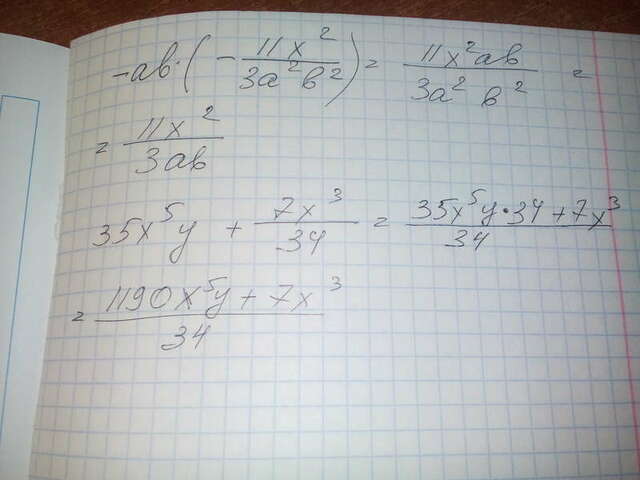 -ab·(-11x²/3a²b²) = 11x²ab/3a²b² =
= 11x²/3ab
35x⁵y + 7x³/34 = 35x⁵y·34+7x³/34
= 1190x⁵y + 7x³/34